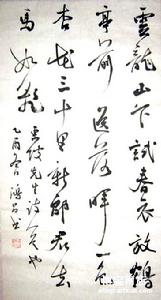 雲龍山下試春衣放鶴
亭前送落暉一色
杏花三十里新郎君去
馬如飛 東坡先生詩
乙酉